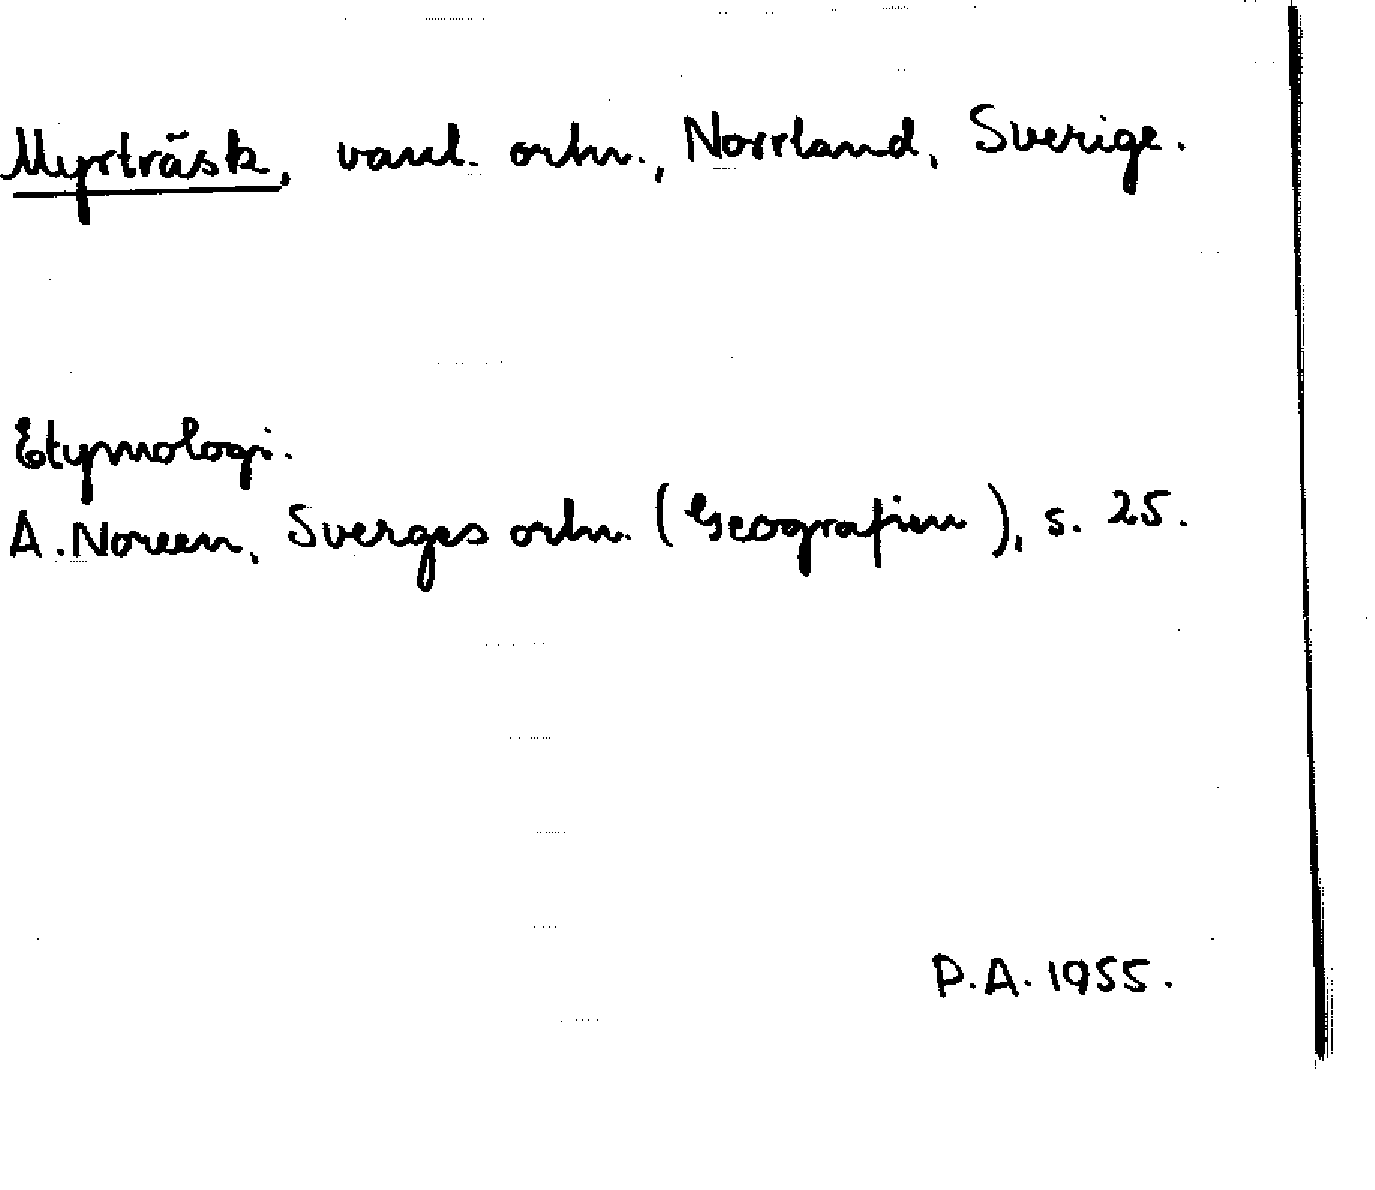 Myrträsk, vanl. ortn., Norrland, Sverige.
Etymologi.
A. Noreen, Sverges ortn. (Geografien), s. 25.
P.A. 1955.